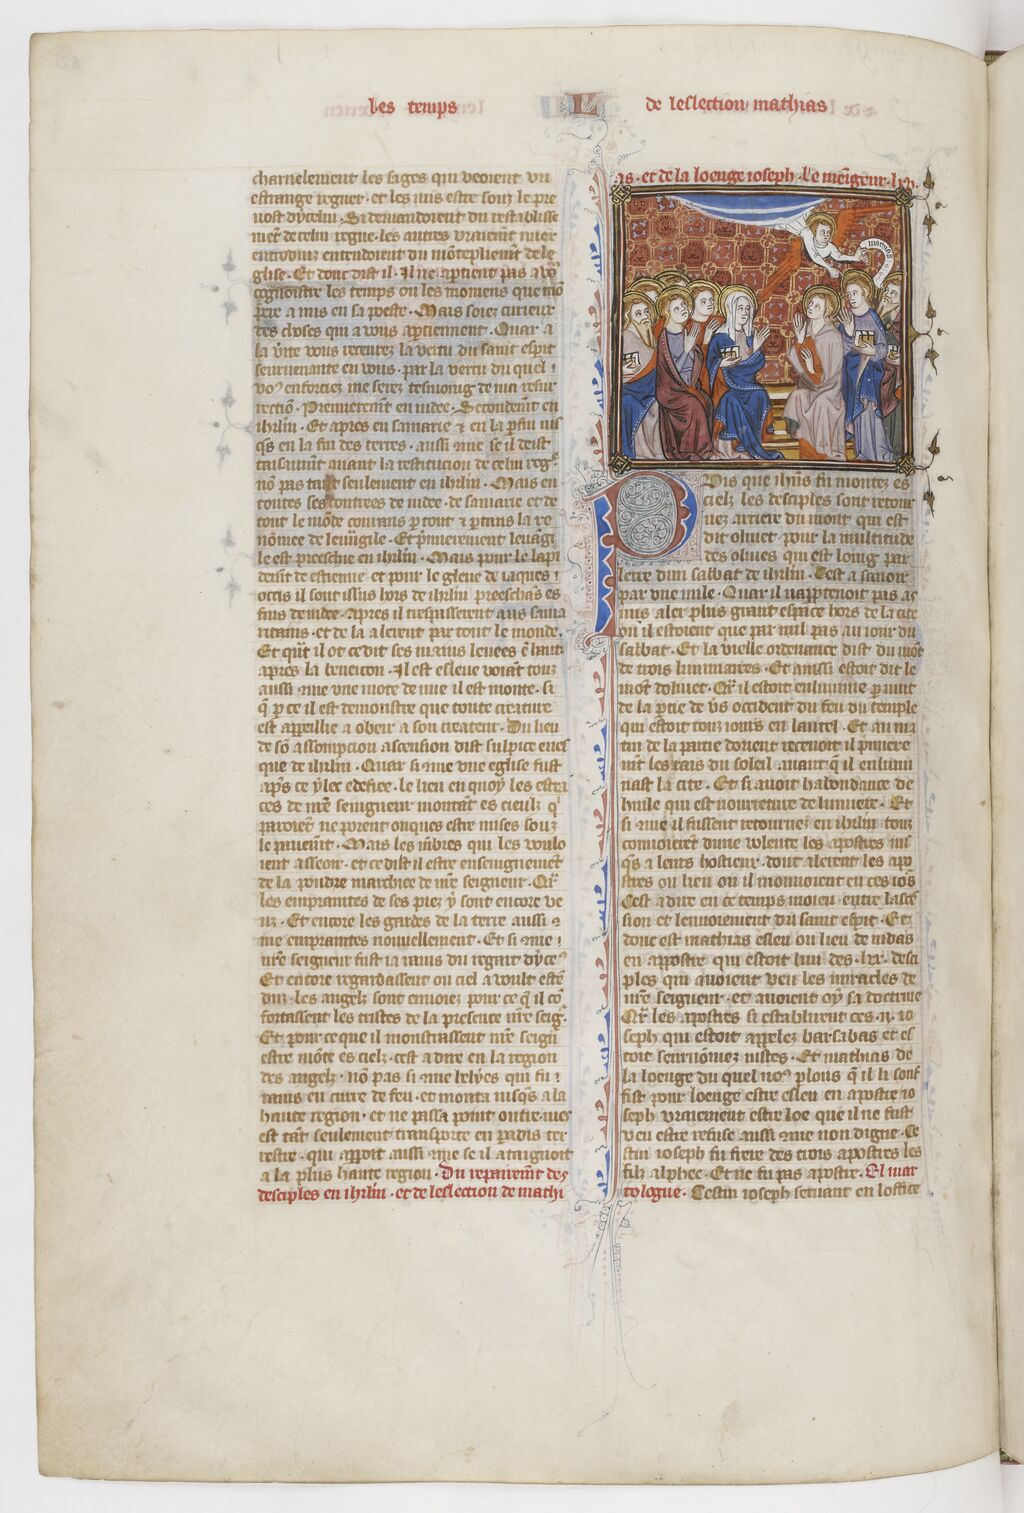 les temps L de leslection mathias
charnelement les sages qui veoient un
estrange regner · et les iuis estre souz le pre
uost dycelui · Si demandoient du restablisse
ment de celui regne · les autres vraiemt mier
entroduiz entendoient du mōteplieuīt de le
glise · Et donc dist il · Il ne aptient pas a voꝰ
cognoistre les temps ou les momens que mō
pere a mis en sa poeste · Mais soiez curieux
des choses qui a vous aptiennent · Quar a
la v̄ite vous receurez la vertu du saint espit
seurvenante en vous · par la vertu du quel ·
voꝰ enforciez me serez tesmoing de ma resur
rectiō · Premierem̄t en iudee · Secondem̄t en
ihrlm · Et apres en samarie ⁊ en la p̄fin ius
qs̄ en la fin des terres · aussi ꝯme se il deist
taisaumt auant la restitucion de celui regꝰ
nō pas tant seulement en ihrlm · Mais en
toutes ses contrees de iudee · de samarie et de
tout le mōde courans p tout ⁊ ptans la re
nōmee de leuūgile · Et p̄mierement leuāgi
le est preeschie en ihrlm · Mais pour le lapi
deisit de estienne · et pour le gleue de iaques ·
occis il sont issus hors de ihrlm preeschās es
fins de iudee · Apres il trespasserent aus sama
ritains · et de la alerent par tout le monde ·
Et qn̄t il ot ce dit ses mains leuees ē haut
apres la beneicon · Il est esleue voiāt touz
aussi ꝯme vne mote de nue il est monte · si
q̄ p ce il est demonstre que toute creature
est appeillie a obeir a son createur · Du lieu
de sō assompcion ascension dist sulpice eues
que de ihrlm · Quar si ꝯme vne eglise fust
ap̄s ce y lec edefice · le lieu en quoy les estra
ces de nr̄e seingneur montāt es cieulz q̄
paroiēt ne porent onques estre mises souz
le pauemīt · Mais les m̄bres qui les voulo
ient asseoir · et ce dist il estre enseingnemēt
de la poudre marchiee de nr̄e seigneur · Qr̄
les empraintes de ses piez y sont encore ve
uz · Et encore les gardes de la terre aussi ꝯ
me empraintes nouuellement · Et si ꝯme ·
nr̄e seigneur fust ia rauis du regart dyceꝰ
Et encore regardassent ou ciel a voult estē
duz · les angelz sont enuoiez pour ce q̄ il cō
fortassent les tristes de la presence nr̄e seigꝰ ·
Et pour ce que il monstrassent nr̄e seign
estre mōte es cielz · cest a dire en la region
des angelz · nō pas si ꝯme helyes qui fu ·
rauis en curre de feu · et monta iusqs̄ a la
haute region · et ne passa point oultre · mes
est tāt seulement transporte en padis ter
restre · qui apptoit aussi ꝯme se il ataignoit
a la plus haute region · Du repairem̄t des
desciples en ihrlm · et de leslection de mathi
as · et de la loenge ioseph · le meīgeur · lxii ·
mathias
Pvis que ihūs fu montez es
cielz les desciples sont retour
nez arriere du mont qui est
dit oliuet · pour la multitude
des oliues qui est loing par
lerre dun sabbat de ihrlm · Cest a sauoir
par vne mile · Quar il napptenoit pas as
iuis aler plus grant espace hors de la cite
ou il estoient que par mil pas au iour du
sabbat · Et la vielle ordenance dist du mōt
de trois luminaires · Et aussi estoit dit le
mōt doliuet · Qr̄ il estoit enlumine p nuit
de la p̄tie de v̄s occident du feu du temple
qui estoit touz iours en lautel · Et au ma
tin de la partie dorient receuoit il p̄miere
m̄t les rais du soleil auant q̄ il enlumi
nast la cite · Et si auoit habondance de
huile qui est nourreture de lumiere · Et
si ꝯme il fussent retournez en ihrlm touz
conuoierēt dune volente les apostres ius
qs̄ a leurs hostieux · dont alerent les apo
stres ou lieu ou il monuoient en ces iors
Cest a dire en ce temps moien entre lascē
sion et lenuoiement du saint esp̄it · Et
donc est mathias esleu ou lieu de iudas
en appostre qui estoit lun des · lxx · desci
ples qui auoient veu les miracles de
nr̄e seigneur · et auoient oy sa doctrine
Qr̄ les apostres si establirent ces · ii · io
seph qui estoit appelez barsabas et es
toit seurnōmez iustes · Et mathias de
la loenge du quel noꝰ plons q̄ il li souf
fist pour loenge estre esleu en apostre io
seph vraiement estre loe que il ne fust
veu estre refuse aussi ꝯme non digne · Ce
stui ioseph fu frere des trois apostres les
filz alphee · Et ne fu pas apostre · El mar
tologue · Cestui ioseph seruant en loffice